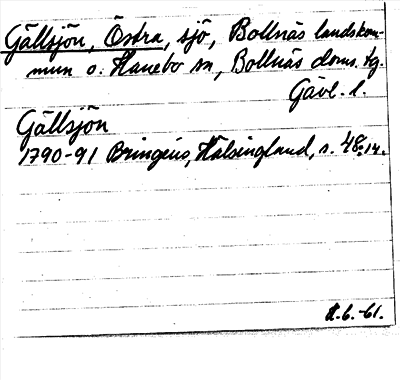 Gällsjön, Östra, sjö, Bollnäs landskom-
mun o. Hanebo sn, Bollnäs doms. tg.
Gävl. l.
Gällsjön
1790-91 Bringéus, Hälsingland, s. 48
6.-61.